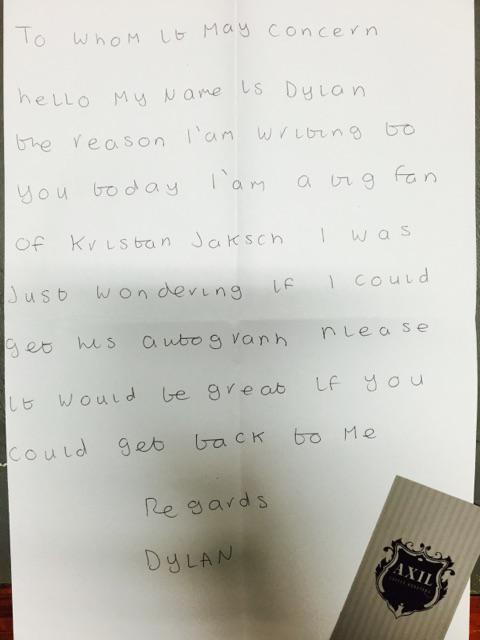 To whom it May concern
hello My Name is Dylan
the reason I'am writing to
you today I'am a big fan
of Kristan Jaksch I was
Just wondering if I could
get his autograph please
it would be great if you
could get back to Me
Regards
DYLAN
AXIL
COFFEE ROASTERS